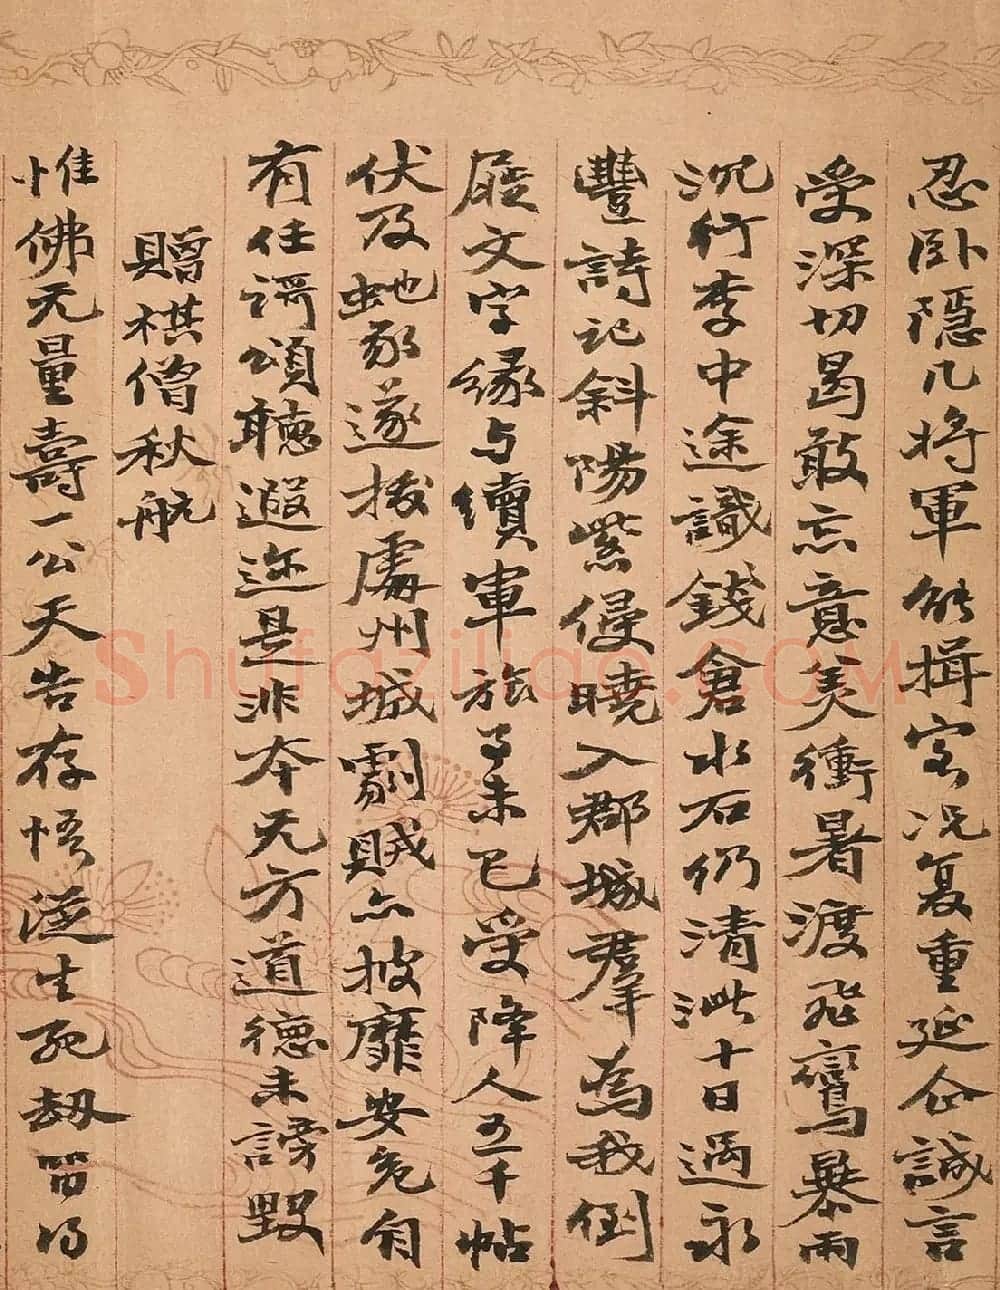 忍卧隱几将軍能揖客况复重延企誠言
受深切曷敢忘意美衝暑渡飛鸞暴雨
沉行李中途識錢倉水石仍清泚十日過永
豐詩記斜陽紫侵曉入郡城羣為我倒
屣文字缘与續軍旅事未已受降人五千帖
伏及虵豕遂拨處州城劇賊亦披靡安危自
有任謌頌聽遐迩是非夲无方道德未謗毀
贈棋僧秋航
惟佛无量壽一公天告存悟澄生死劫留得
Shufaziliao.com